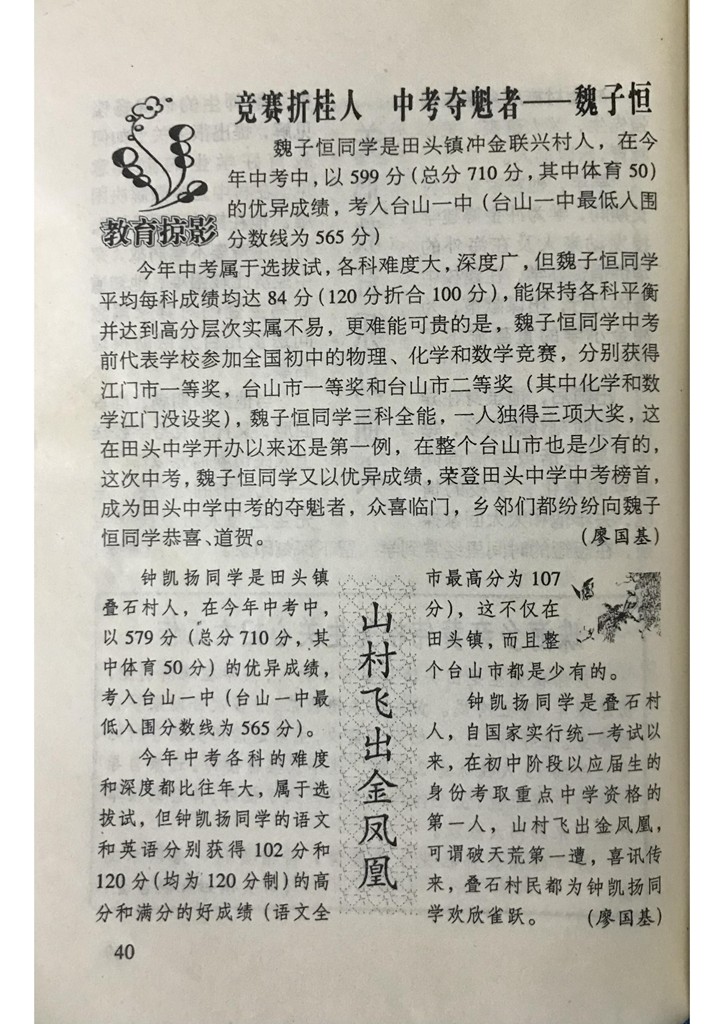 竞赛折桂人　中考夺魁者——魏子恒
教育掠影
魏子恒同学是田头镇冲金联兴村人，在今
年中考中，以 599 分（总分 710 分，其中体育 50）
的优异成绩，考入台山一中（台山一中最低入围
分数线为 565 分）
今年中考属于选拔试，各科难度大，深度广，但魏子恒同学
平均每科成绩均达 84 分（120 分折合 100 分），能保持各科平衡
并达到高分层次实属不易，更难能可贵的是，魏子恒同学中考
前代表学校参加全国初中的物理、化学和数学竞赛，分别获得
江门市一等奖，台山市一等奖和台山市二等奖（其中化学和数
学江门没设奖），魏子恒同学三科全能，一人独得三项大奖，这
在田头中学开办以来还是第一例，在整个台山市也是少有的，
这次中考，魏子恒同学又以优异成绩，荣登田头中学中考榜首，
成为田头中学中考的夺魁者，众喜临门，乡邻们都纷纷向魏子
恒同学恭喜、道贺。　（廖国基）
山村飞出金凤凰
钟凯扬同学是田头镇
叠石村人，在今年中考中，
以 579 分（总分 710 分，其
中体育 50 分）的优异成绩，
考入台山一中（台山一中最
低入围分数线为 565 分）。
今年中考各科的难度
和深度都比往年大，属于选
拔试，但钟凯扬同学的语文
和英语分别获得 102 分和
120 分（均为 120 分制）的高
分和满分的好成绩（语文全
市最高分为 107
分），这不仅在
田头镇，而且整
个台山市都是少有的。
钟凯扬同学是叠石村
人，自国家实行统一考试以
来，在初中阶段以应届生的
身份考取重点中学资格的
第一人，山村飞出金凤凰，
可谓破天荒第一遭，喜讯传
来，叠石村民都为钟凯扬同
学欢欣雀跃。　（廖国基）
40